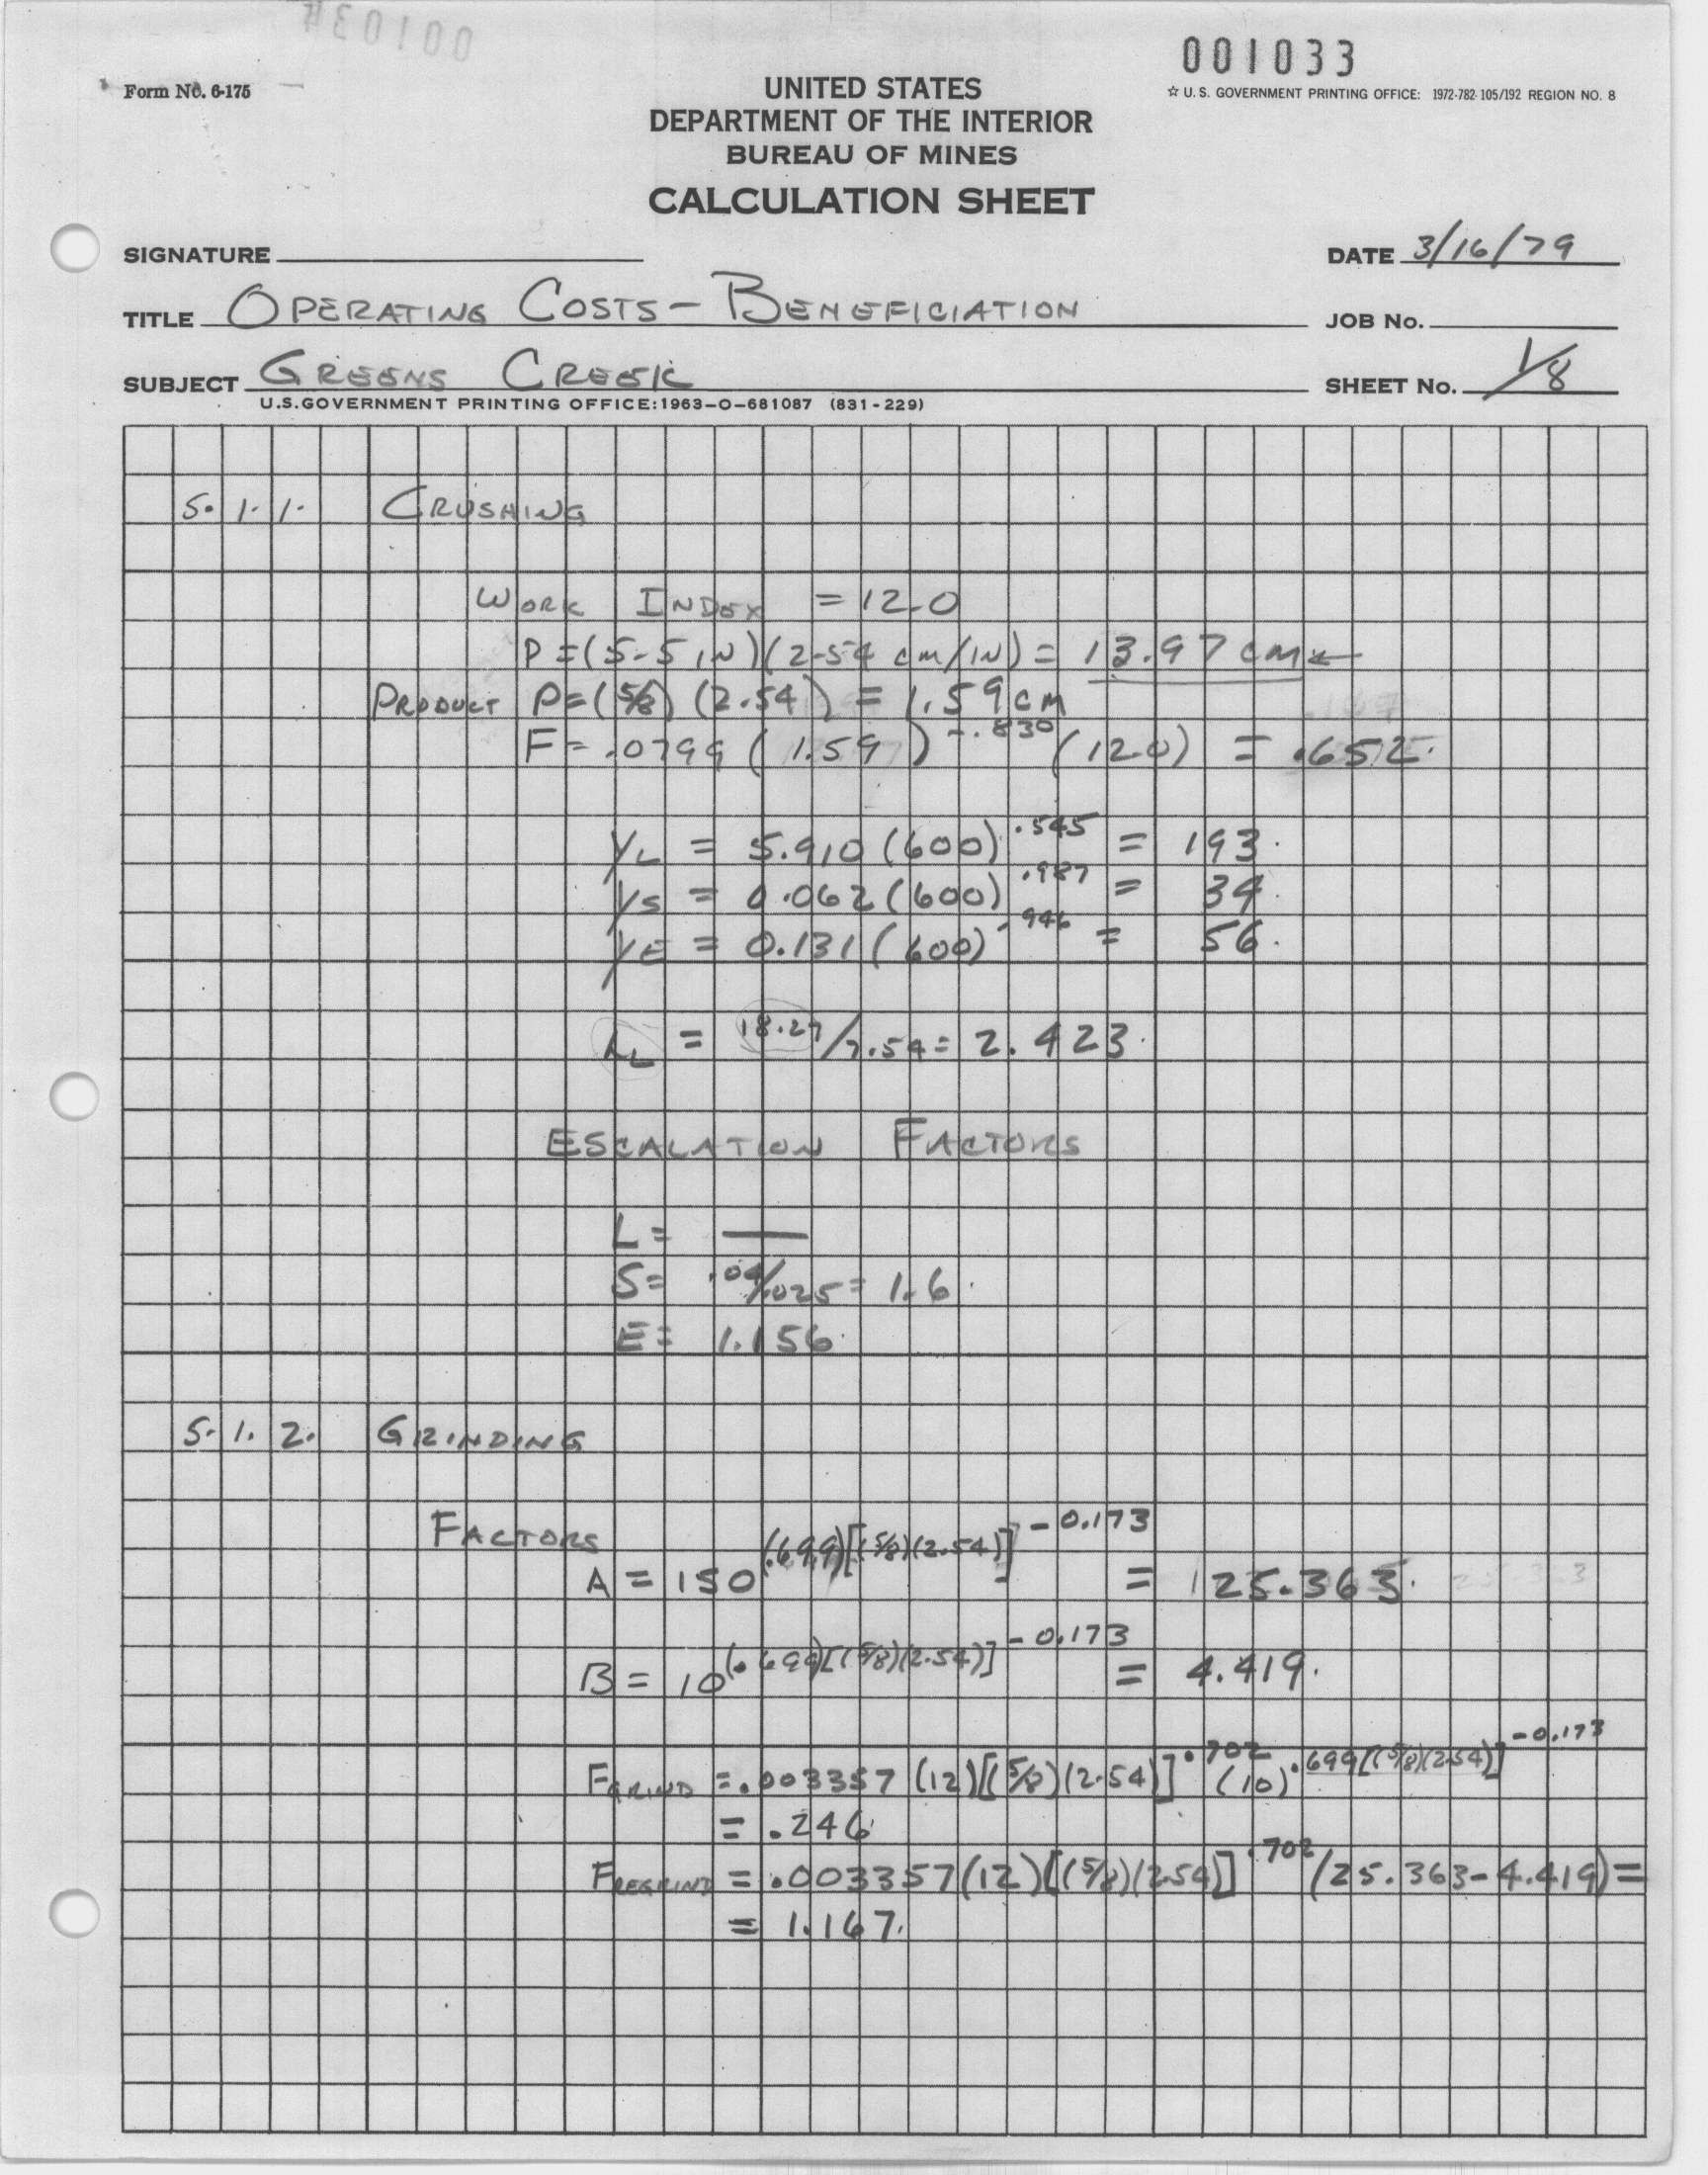 001034
001033
Form No. 6-175
☆ U. S. GOVERNMENT PRINTING OFFICE: 1972-782-105/192 REGION NO. 8
UNITED STATES
DEPARTMENT OF THE INTERIOR
BUREAU OF MINES
CALCULATION SHEET
SIGNATURE
DATE 3/16/79
TITLE OPERATING COSTS - BENEFICIATION
JOB No.
SUBJECT GREENS CREEK
SHEET No. 1/8
U.S.GOVERNMENT PRINTING OFFICE:1963-O-681087 (831-229)
5.1.1. CRUSHING
WORK INDEX = 12.0
P = (5.5 IN)(2.54 cm/IN) = 13.97 cm ←
PRODUCT P = (5/8) (2.54) = 1.59 cm
F = .0799 (1.59)^-.830 (12.0) = .652.
YL = 5.910 (600)^.545 = 193.
YS = 0.062 (600)^.987 = 34.
YE = 0.131 (600)^.946 = 56.
LL = 18.27/7.54 = 2.423.
ESCALATION FACTORS
L = —
S = .04/.025 = 1.6.
E = 1.156.
5.1.2. GRINDING
FACTORS
A = 150^(.699)[(5/8)(2.54)]^-0.173 = 125.363.
B = 10^(.699)[(5/8)(2.54)]^-0.173 = 4.419.
FGRIND = .003357 (12)[(5/8)(2.54)]^.702 (10)^.699[(5/8)(2.54)]^-0.173
= .246
FREGRIND = .003357(12)[(5/8)(2.54)]^.702 (25.363-4.419) =
= 1.167.